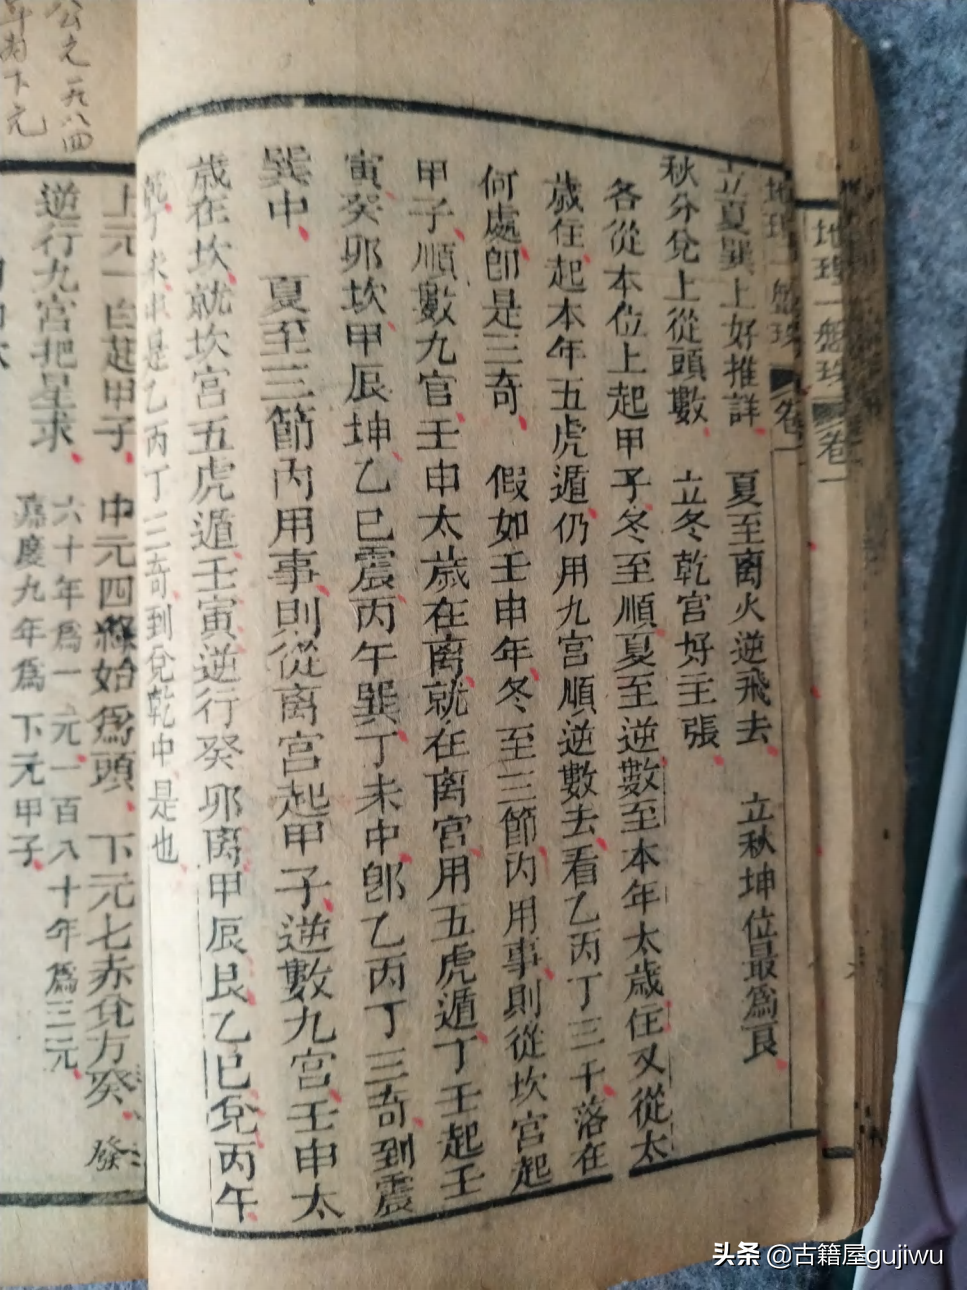 地理一盤珠 卷一
立夏巽上好推詳 夏至离火逆飛去 立秋坤位最爲良
秋分兌上從頭數 立冬乾宮好主張
各從本位上起甲子冬至順夏至逆數至本年太歲住又從太
歲在起本年五虎遁仍用九宮順逆數去看乙丙丁三干落在
何處卽是三奇 假如壬申年冬至三節內用事則從坎宮起
甲子順數九官壬申太歲在离就在离宮用五虎遁丁壬起壬
寅癸卯坎甲辰坤乙巳震丙午巽丁未中卽乙丙丁三奇到震
巽中 夏至三節丙用事則從离宮起甲子逆數九宮壬申太
歲在坎就坎宮五虎遁壬寅逆行癸卯离甲辰艮乙巳兌丙午
乾丁未中是乙丙丁三奇到兌乾中是也
上元一白起甲子 中元四綠始爲頭 下元七赤兌方癸 發
逆行九宮把星求 六十年爲一元一百八十年爲三元
嘉慶九年爲下元甲子
公元一九八四
年爲下元
地理一盤珠 卷一
头条 @古籍屋gujiwu